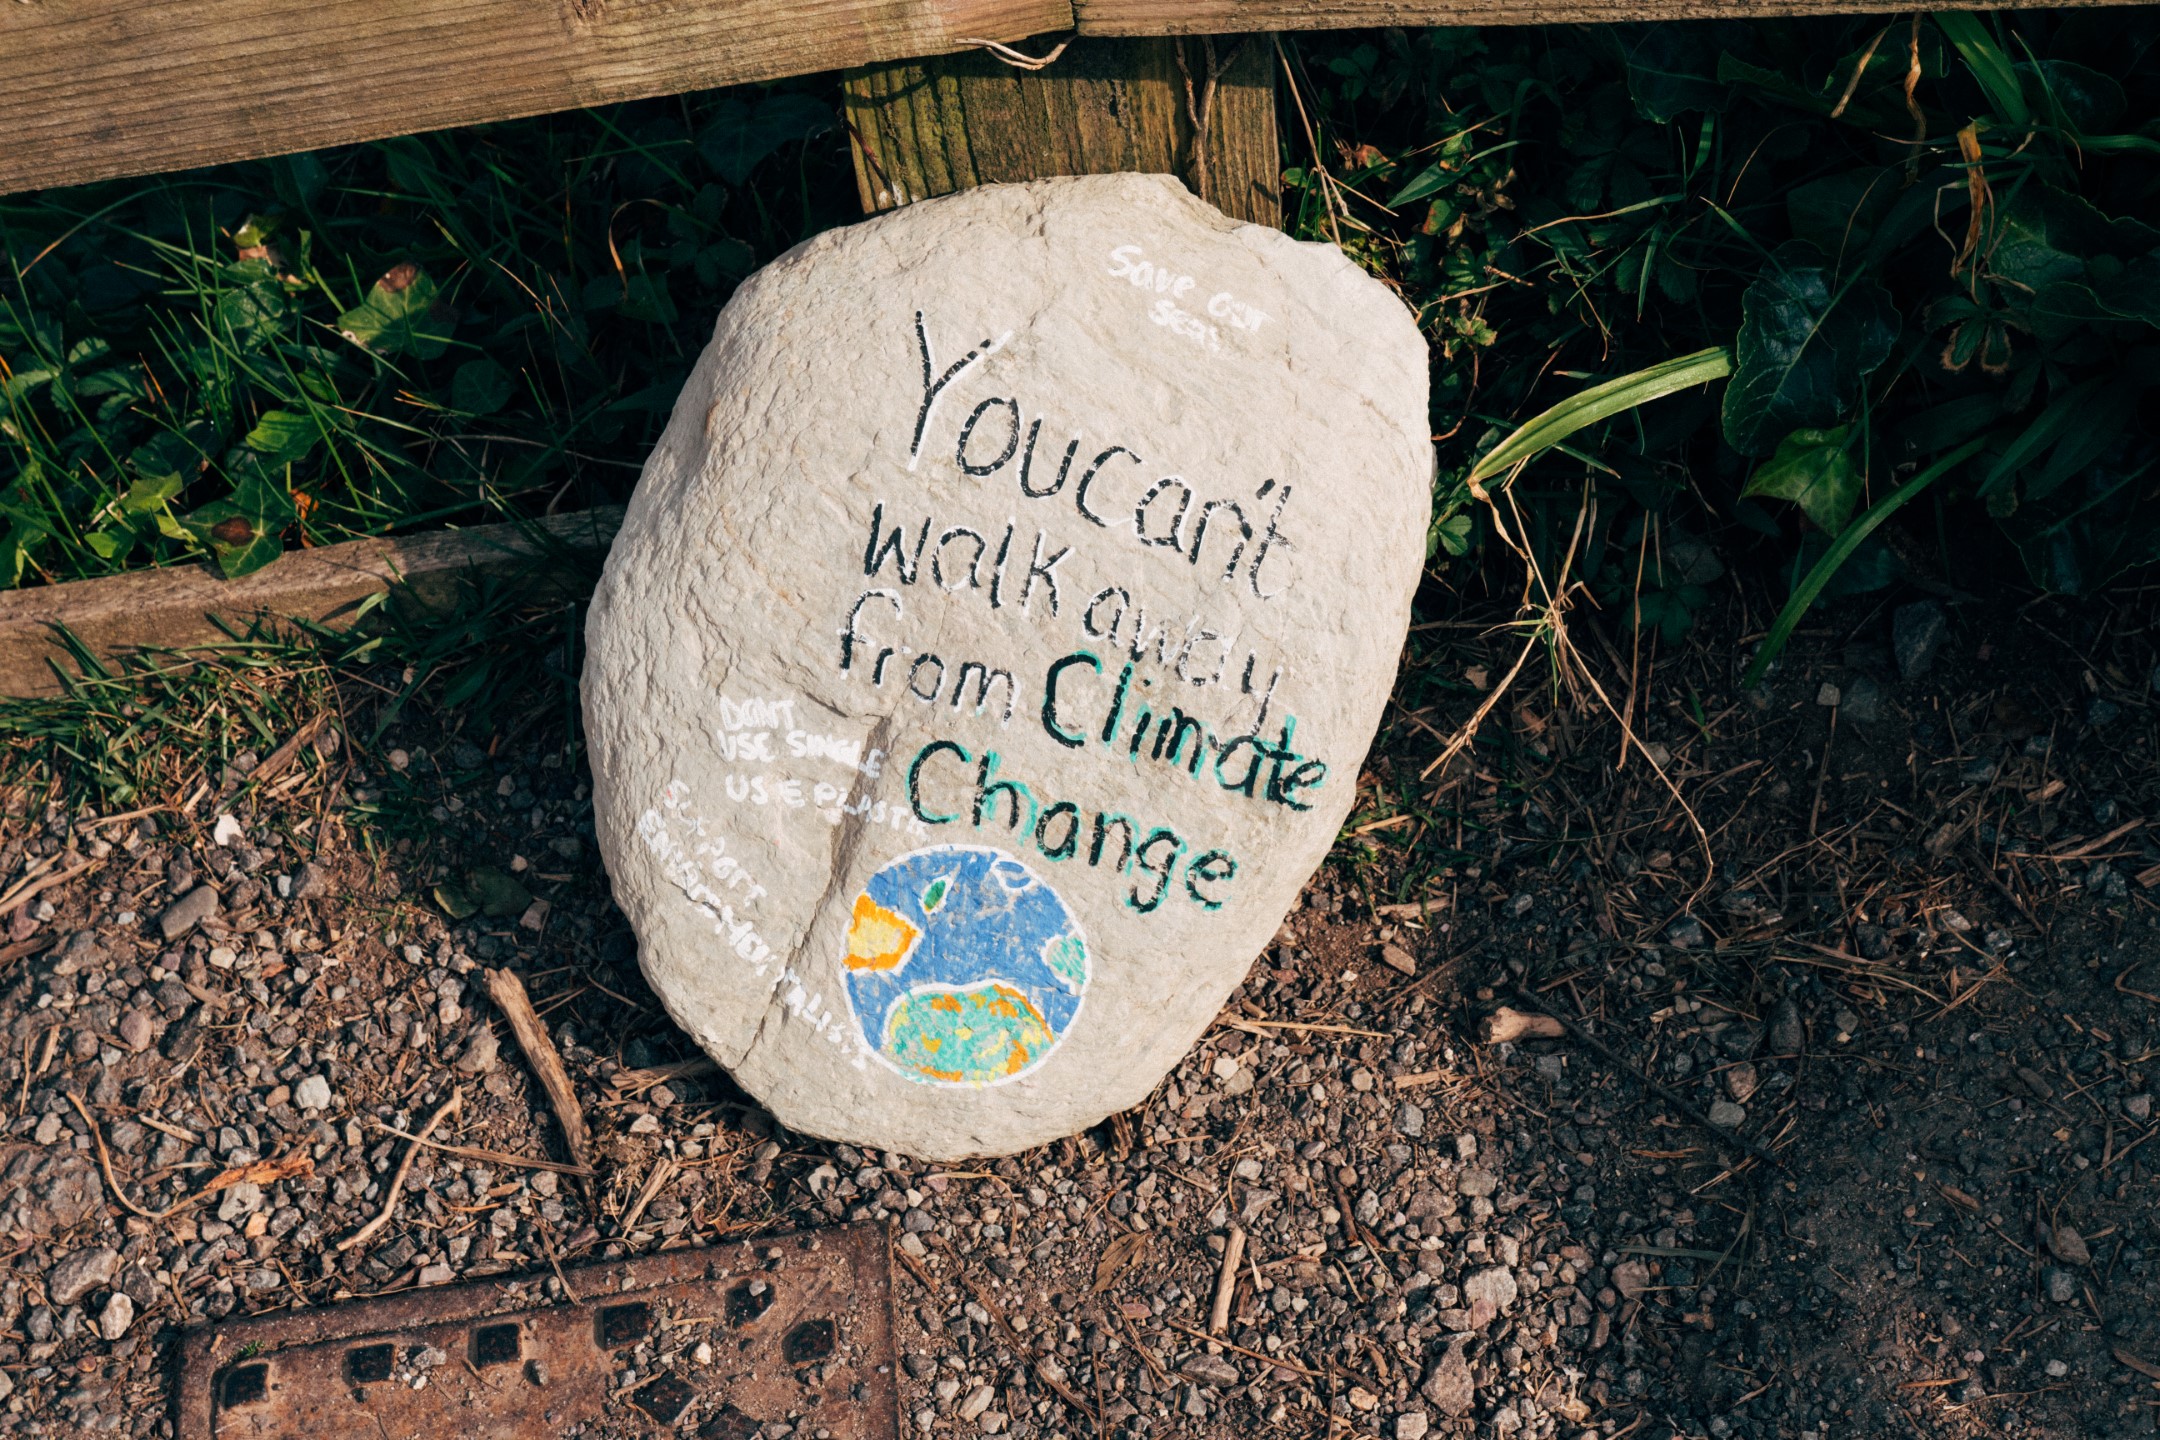 Save our
seas
You can't
walk away
from Climate
Change
DONT
USE SINGLE
USE PLASTIC
SUPPORT
ENVIRONMENTALISTS